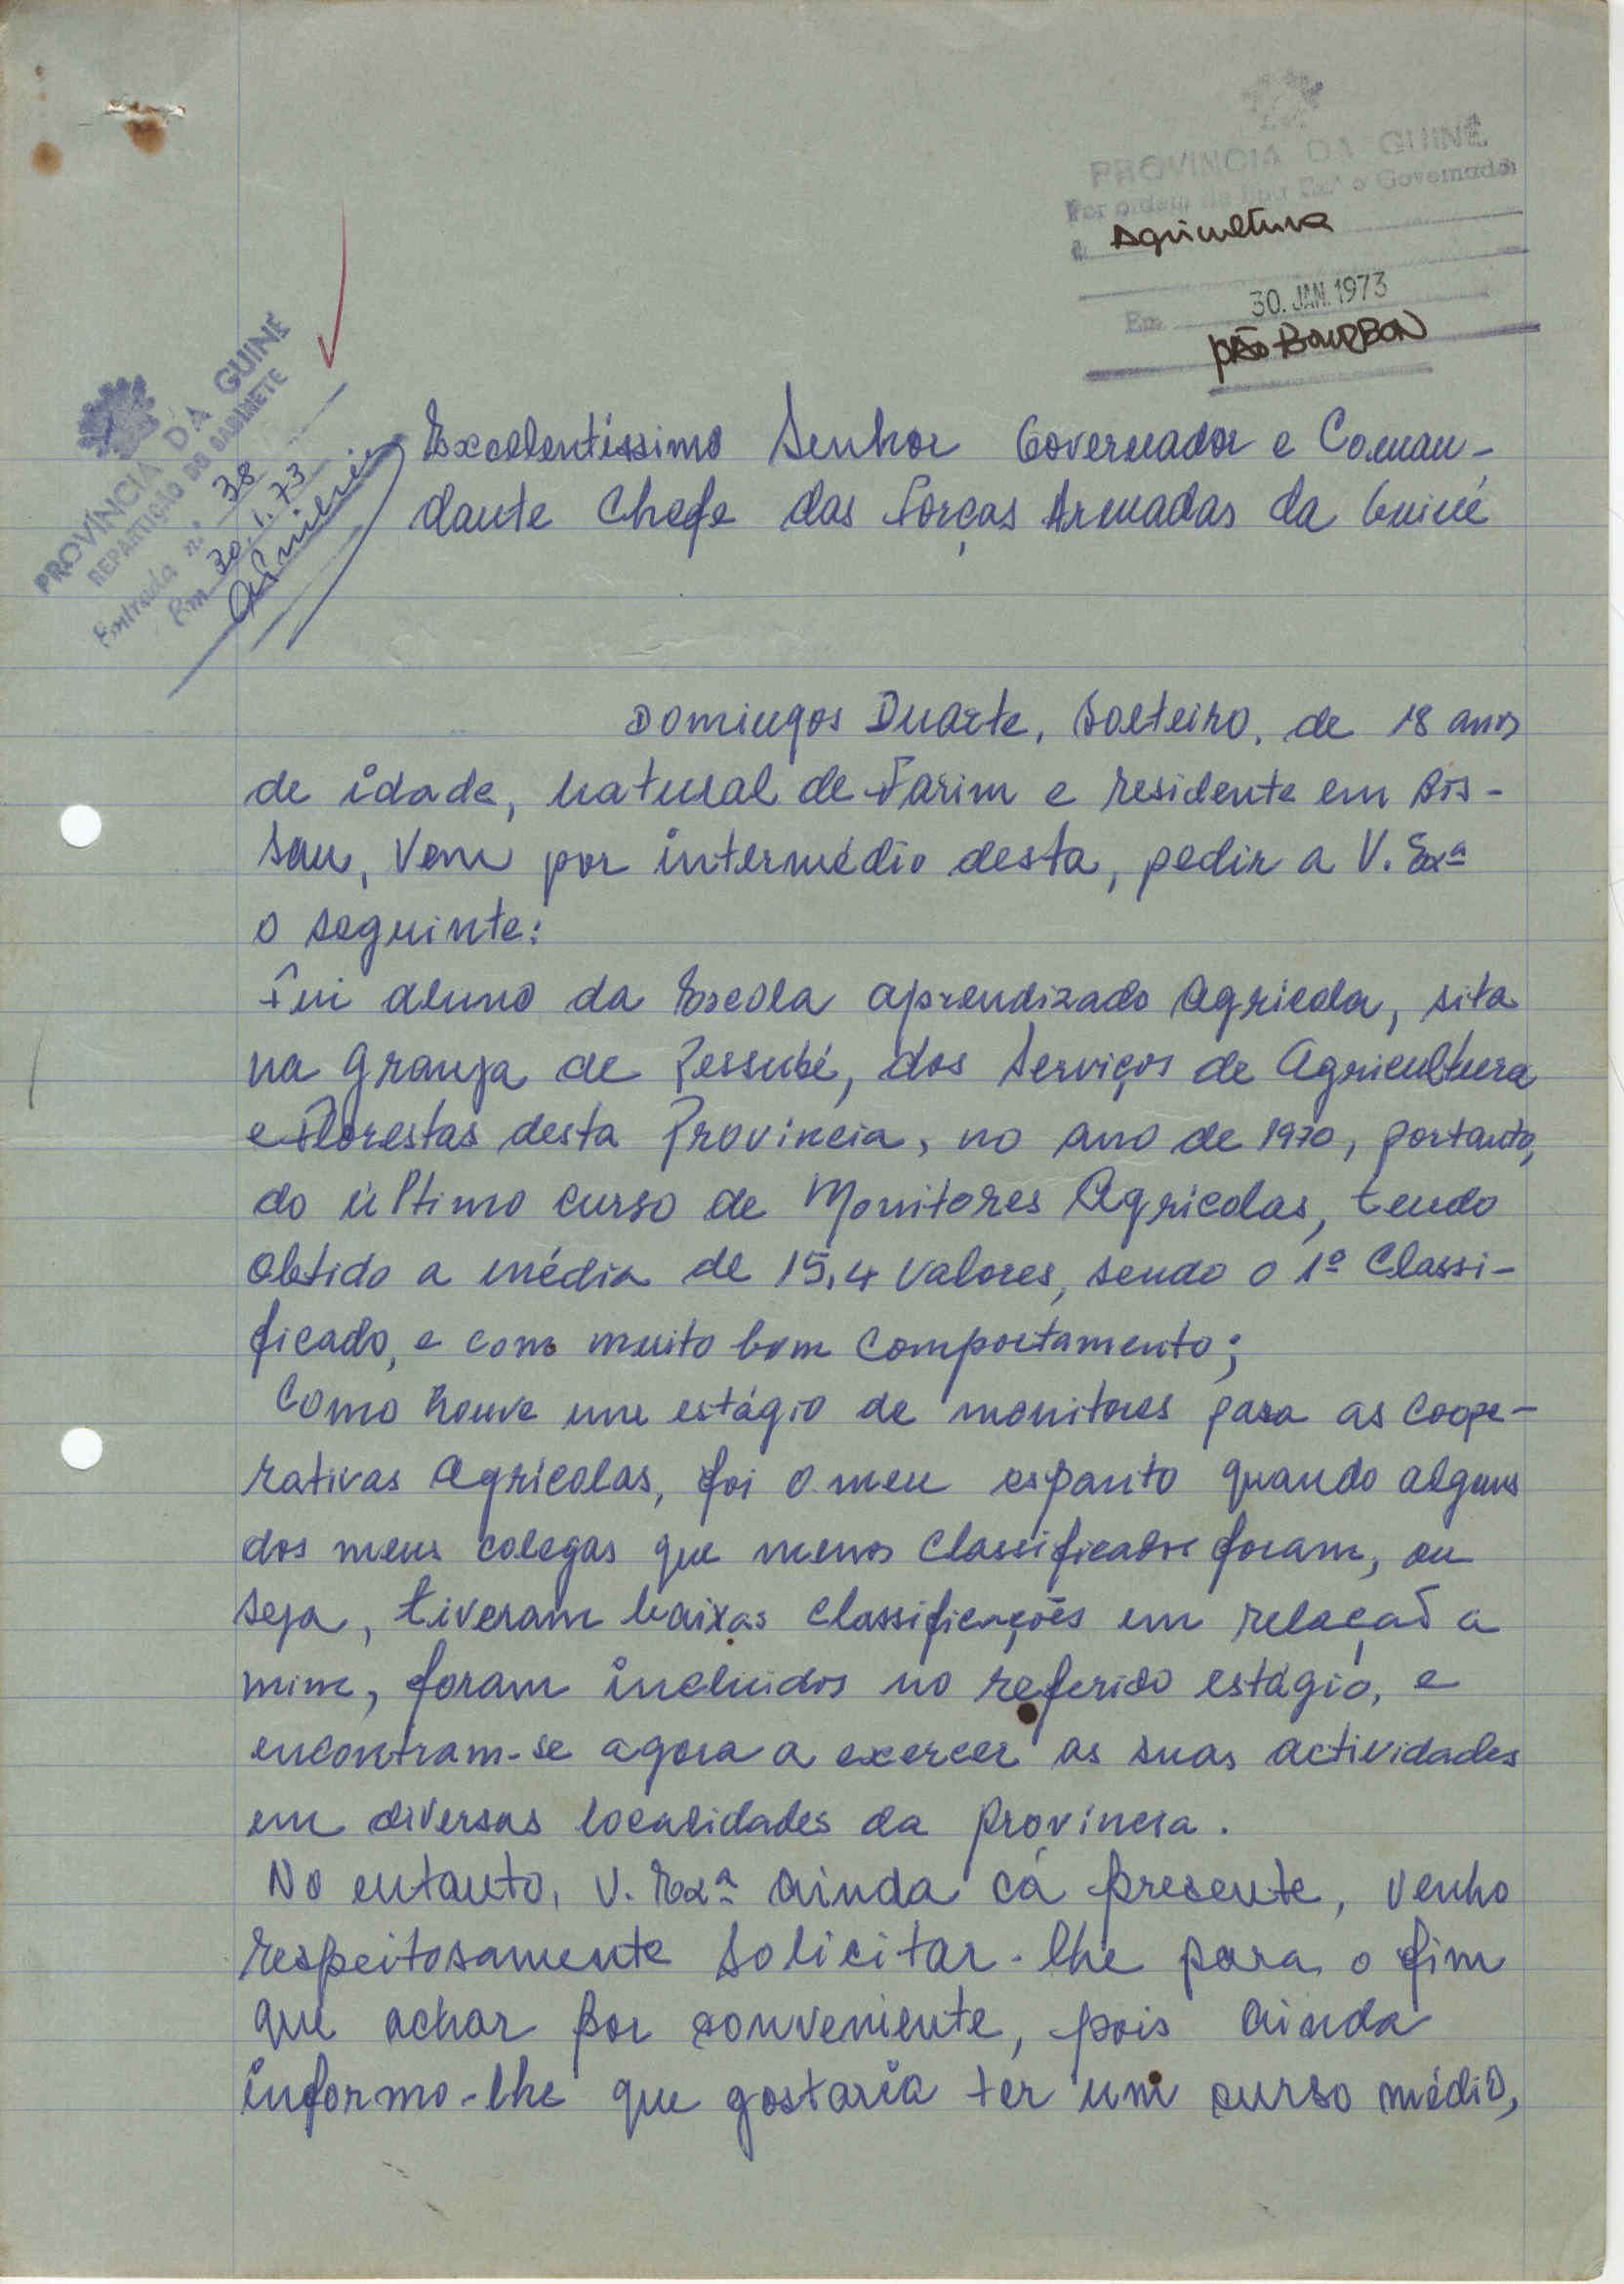 PROVINCIA DA GUINÉ
Por ordem de Sua Exª o Governador
à Agricultura
Em 30. JAN. 1973
PROVÍNCIA DA GUINÉ
REPARTIÇÃO DO GABINETE
Entrada n.º 38
Em 30.1.73
Excelentíssimo Senhor Governador e Coman-
dante Chefe das Forças Armadas da Guiné
Domingos Duarte, Solteiro, de 18 anos
de idade, natural de Farim e residente em Bis-
sau, Vem por intermédio desta, pedir a V. Exª
o seguinte:
Fui aluno da Escola aprendizado Agrícola, sita
na Granja de Pessubé, dos Serviços de Agricultura
e Florestas desta Província, no ano de 1970, portanto,
do último curso de Monitores Agrícolas, tendo
obtido a média de 15,4 valores, sendo o 1º Classi-
ficado, e com muito bom comportamento;
Como houve um estágio de monitores para as coope-
rativas Agrícolas, foi o meu espanto quando alguns
dos meus colegas que menos classificados foram, ou
seja, tiveram baixas classificações em relação a
mim, foram incluidos no referido estágio, e
encontram-se agora a exercer as suas actividades
em diversas localidades da província.
No entanto, V. Exª ainda cá presente, venho
respeitosamente solicitar-lhe para o fim
que achar por conveniente, pois ainda
informo-lhe que gostaria ter um curso médio,